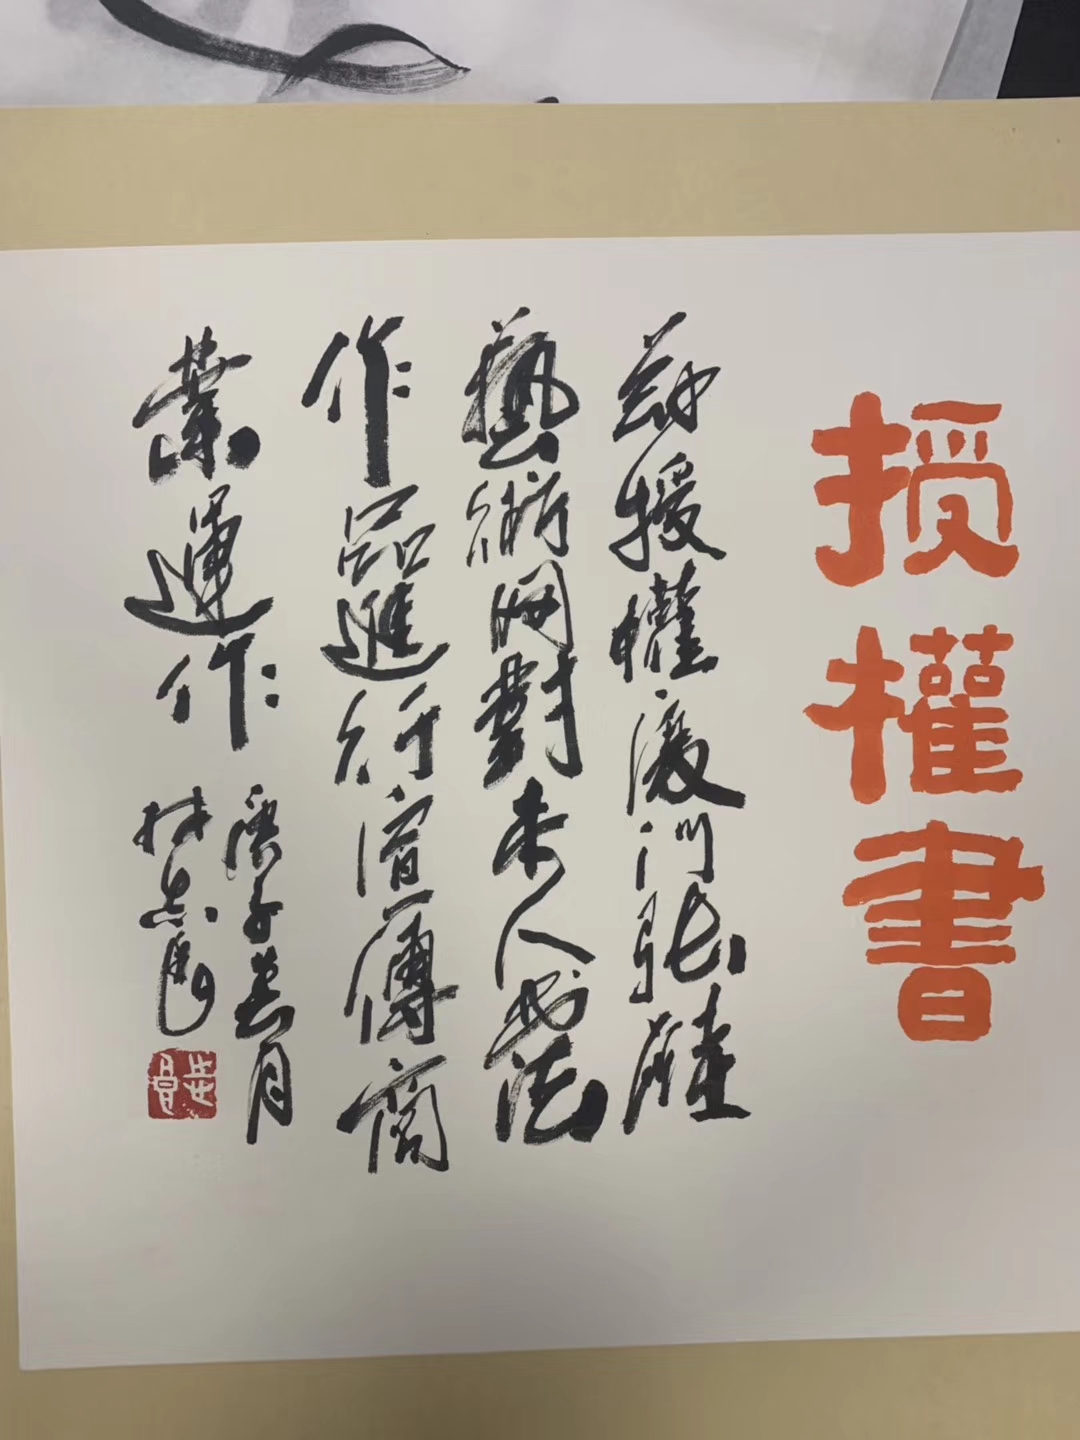 授權書
茲授權廈門張雄
藝術網對本人书法
作品進行宣傳商
業運作
庚子春月
林志良